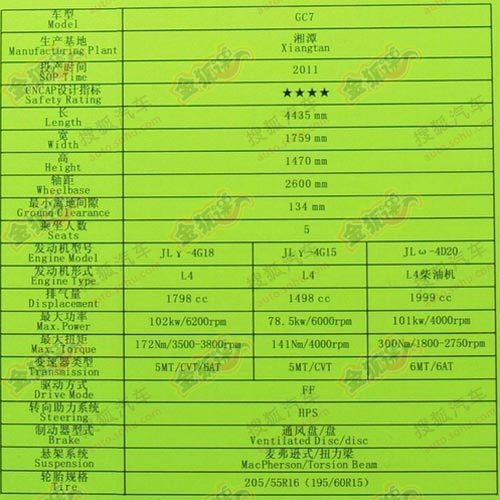 车型 GC7
Model
生产基地 湘潭
Manufacturing Plant Xiangtan
投产时间 2011
SOP Time
CNCAP设计指标 ★★★★
Safety Rating
长 4435 mm
Length
宽 1759 mm
Width
高 1470 mm
Height
轴距 2600 mm
Wheelbase
最小离地间隙 134 mm
Ground Clearance
乘坐人数 5
Seats
发动机型号 JLγ-4G18 JLγ-4G15 JLω-4D20
Engine Model
发动机形式 L4 L4 L4柴油机
Engine Type
排气量 1798 cc 1498 cc 1999 cc
Displacement
最大功率 102kw/6200rpm 78.5kw/6000rpm 101kw/4000rpm
Max.Power
最大扭矩 172Nm/3500-3800rpm 141Nm/4000rpm 300Nm/1800-2750rpm
Max. Torque
变速器类型 5MT/CVT/6AT 5MT/CVT 6MT/6AT
Transmission
驱动方式 FF
Drive Mode
转向助力系统 HPS
Steering
制动器型式 通风盘/盘
Brake Ventilated Disc/disc
悬架系统 麦弗逊式/扭力梁
Suspension MacPherson/Torsion Beam
轮胎规格 205/55R16（195/60R15）
Tire
搜狐汽车
auto.sohu.com